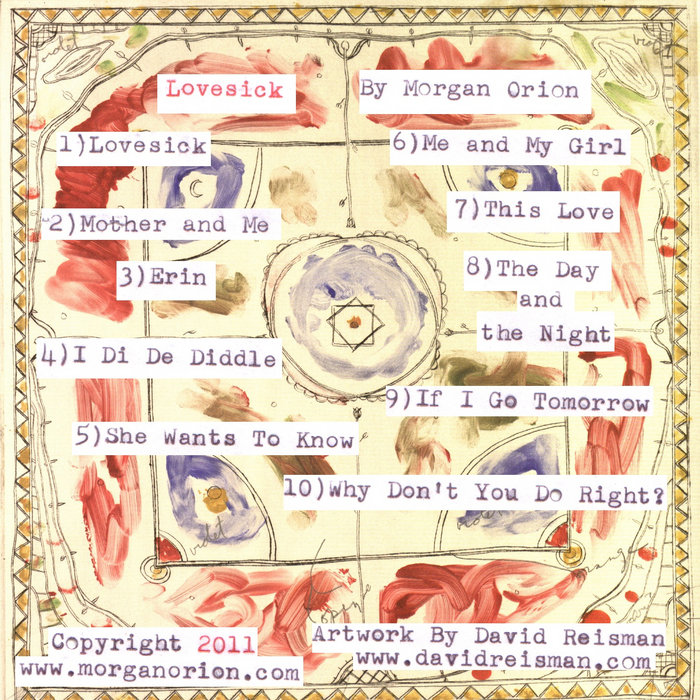 Lovesick
By Morgan Orion
1)Lovesick
2)Mother and Me
3)Erin
4)I Di De Diddle
5)She Wants To Know
6)Me and My Girl
7)This Love
8)The Day
and
the Night
9)If I Go Tomorrow
10)Why Don't You Do Right?
violet
violet
violet
orange
Copyright 2011
www.morganorion.com
Artwork By David Reisman
www.davidreisman.com